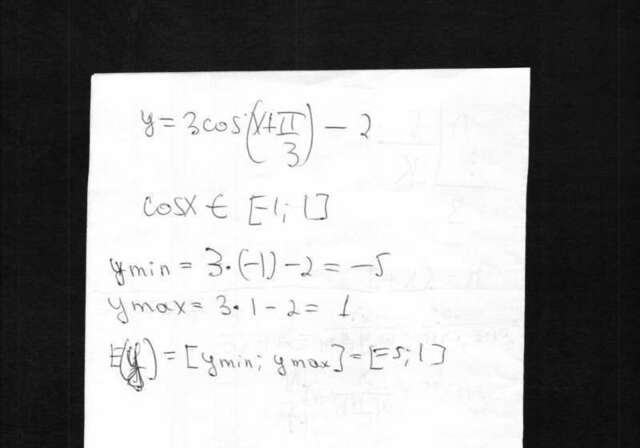 y = 3cos(x+π/3) - 2
cosx ∈ [-1; 1]
ymin = 3·(-1) - 2 = -5
ymax = 3·1 - 2 = 1
E(y) = [ymin; ymax] = [-5; 1]